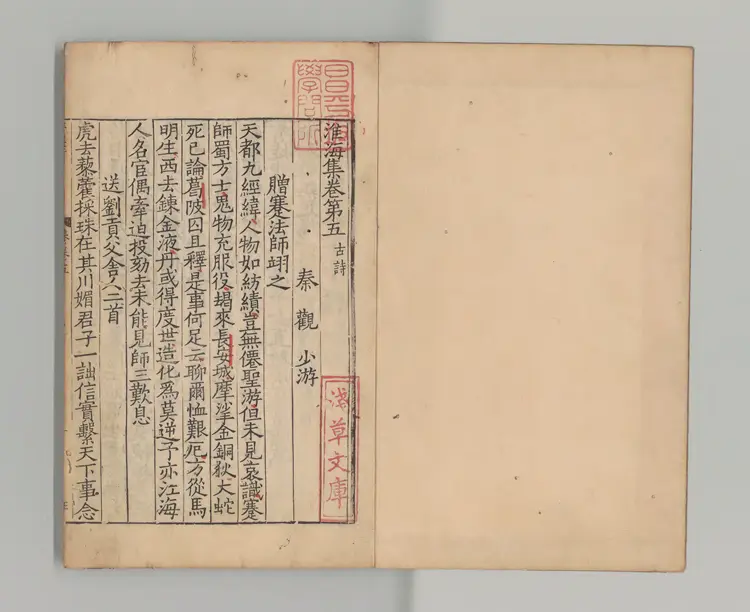 昌平坂學問所
淮海集卷第五 古詩
淺草文庫
秦觀 少游
贈蹇法師翊之
天都九經緯人物如紡績豈無僊聖游但未見哀識蹇
師蜀方士鬼物充服役朅來長安城摩挲金銅狄大蛇
死已論葛陂囚且釋是事何足云聊爾恤艱厄方從馬
明生西去鍊金液丹或得度世造化為莫逆予亦江海
人名宦偶牽迫投劾去未能見師三歎息
送劉貢父舍人二首
虎去藜藿採珠在其川媚君子一詘信實繫天下事念